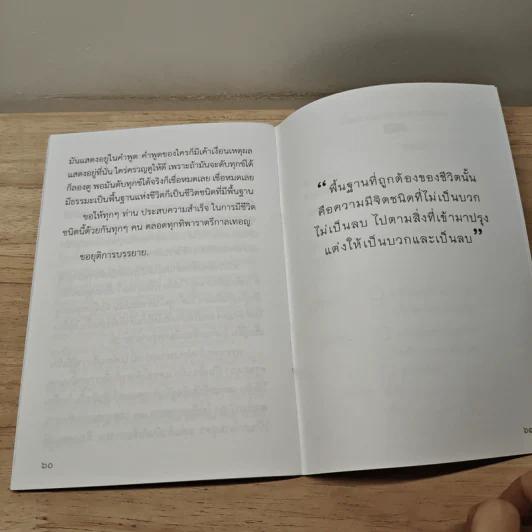 มันแสดงอยู่ในคำพูด คำพูดของใครก็มีเค้าเงื่อนเหตุผล
แสดงอยู่ที่นั่น ใคร่ครวญดูให้ดี เพราะถ้ามันจะดับทุกข์ได้
ก็ลองดู พอมันดับทุกข์ได้จริงก็เชื่อหมดเลย เชื่อหมดเลย
มีธรรมะเป็นพื้นฐานแห่งชีวิตก็เป็นชีวิตชนิดที่มีพื้นฐาน
ขอให้ทุกๆ ท่าน ประสบความสำเร็จ ในการมีชีวิต
ชนิดนี้ด้วยกันทุกๆ คน ตลอดทุกทิพาราตรีกาลเทอญ.
ขอยุติการบรรยาย.
๖๐
“พื้นฐานที่ถูกต้องของชีวิตนั้น
คือความมีจิตชนิดที่ไม่เป็นบวก
ไม่เป็นลบ ไปตามสิ่งที่เข้ามาปรุง
แต่งให้เป็นบวกและเป็นลบ”